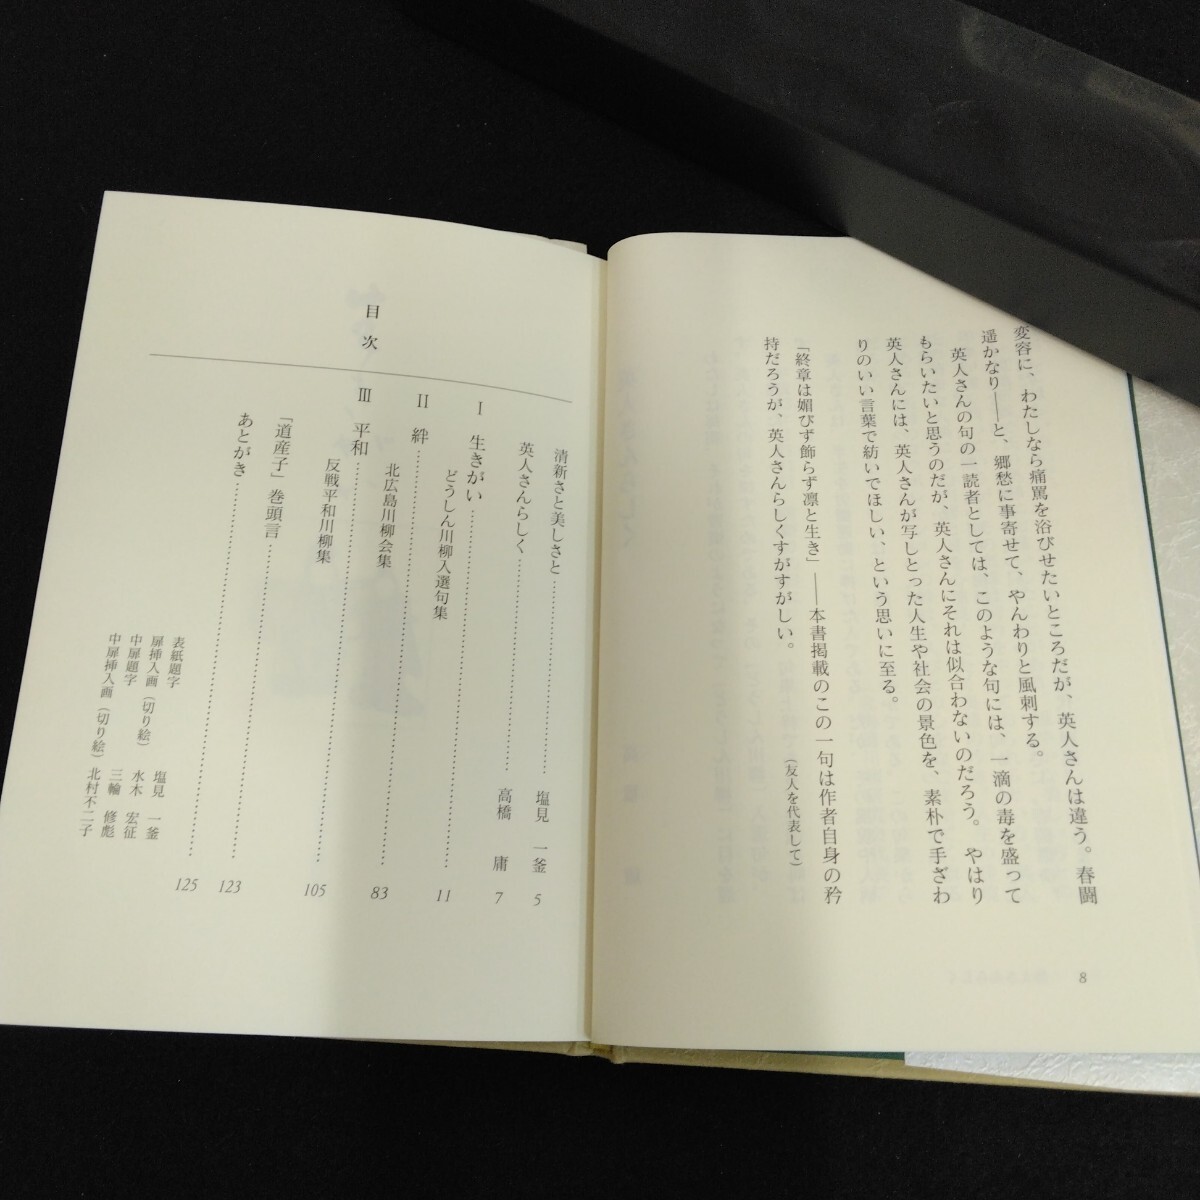 変容に、わたしなら痛罵を浴びせたいところだが、英人さんは違う。春闘
遥かなり――と、郷愁に事寄せて、やんわりと風刺する。
英人さんの句の一読者としては、このような句には、一滴の毒を盛って
もらいたいと思うのだが、英人さんにそれは似合わないのだろう。やはり
英人さんには、英人さんが写しとった人生や社会の景色を、素朴で手ざわ
りのいい言葉で紡いでほしい、という思いに至る。
「終章は媚びず飾らず凛と生き」――本書掲載のこの一句は作者自身の矜
持だろうが、英人さんらしくすがすがしい。
(友人を代表して)
8
目次
清新さと美しさと…… 塩見 一釜 5
英人さんらしく…… 高橋 庸 7
Ⅰ 生きがい…… 11
どうしん川柳入選句集
Ⅱ 絆…… 83
北広島川柳会集
Ⅲ 平和…… 105
反戦平和川柳集
「道産子」巻頭言…… 123
あとがき…… 125
表紙題字 塩見 一釜
扉挿入画(切り絵) 水木 宏征
中扉題字 三輪 修彪
中扉挿入画(切り絵) 北村不二子